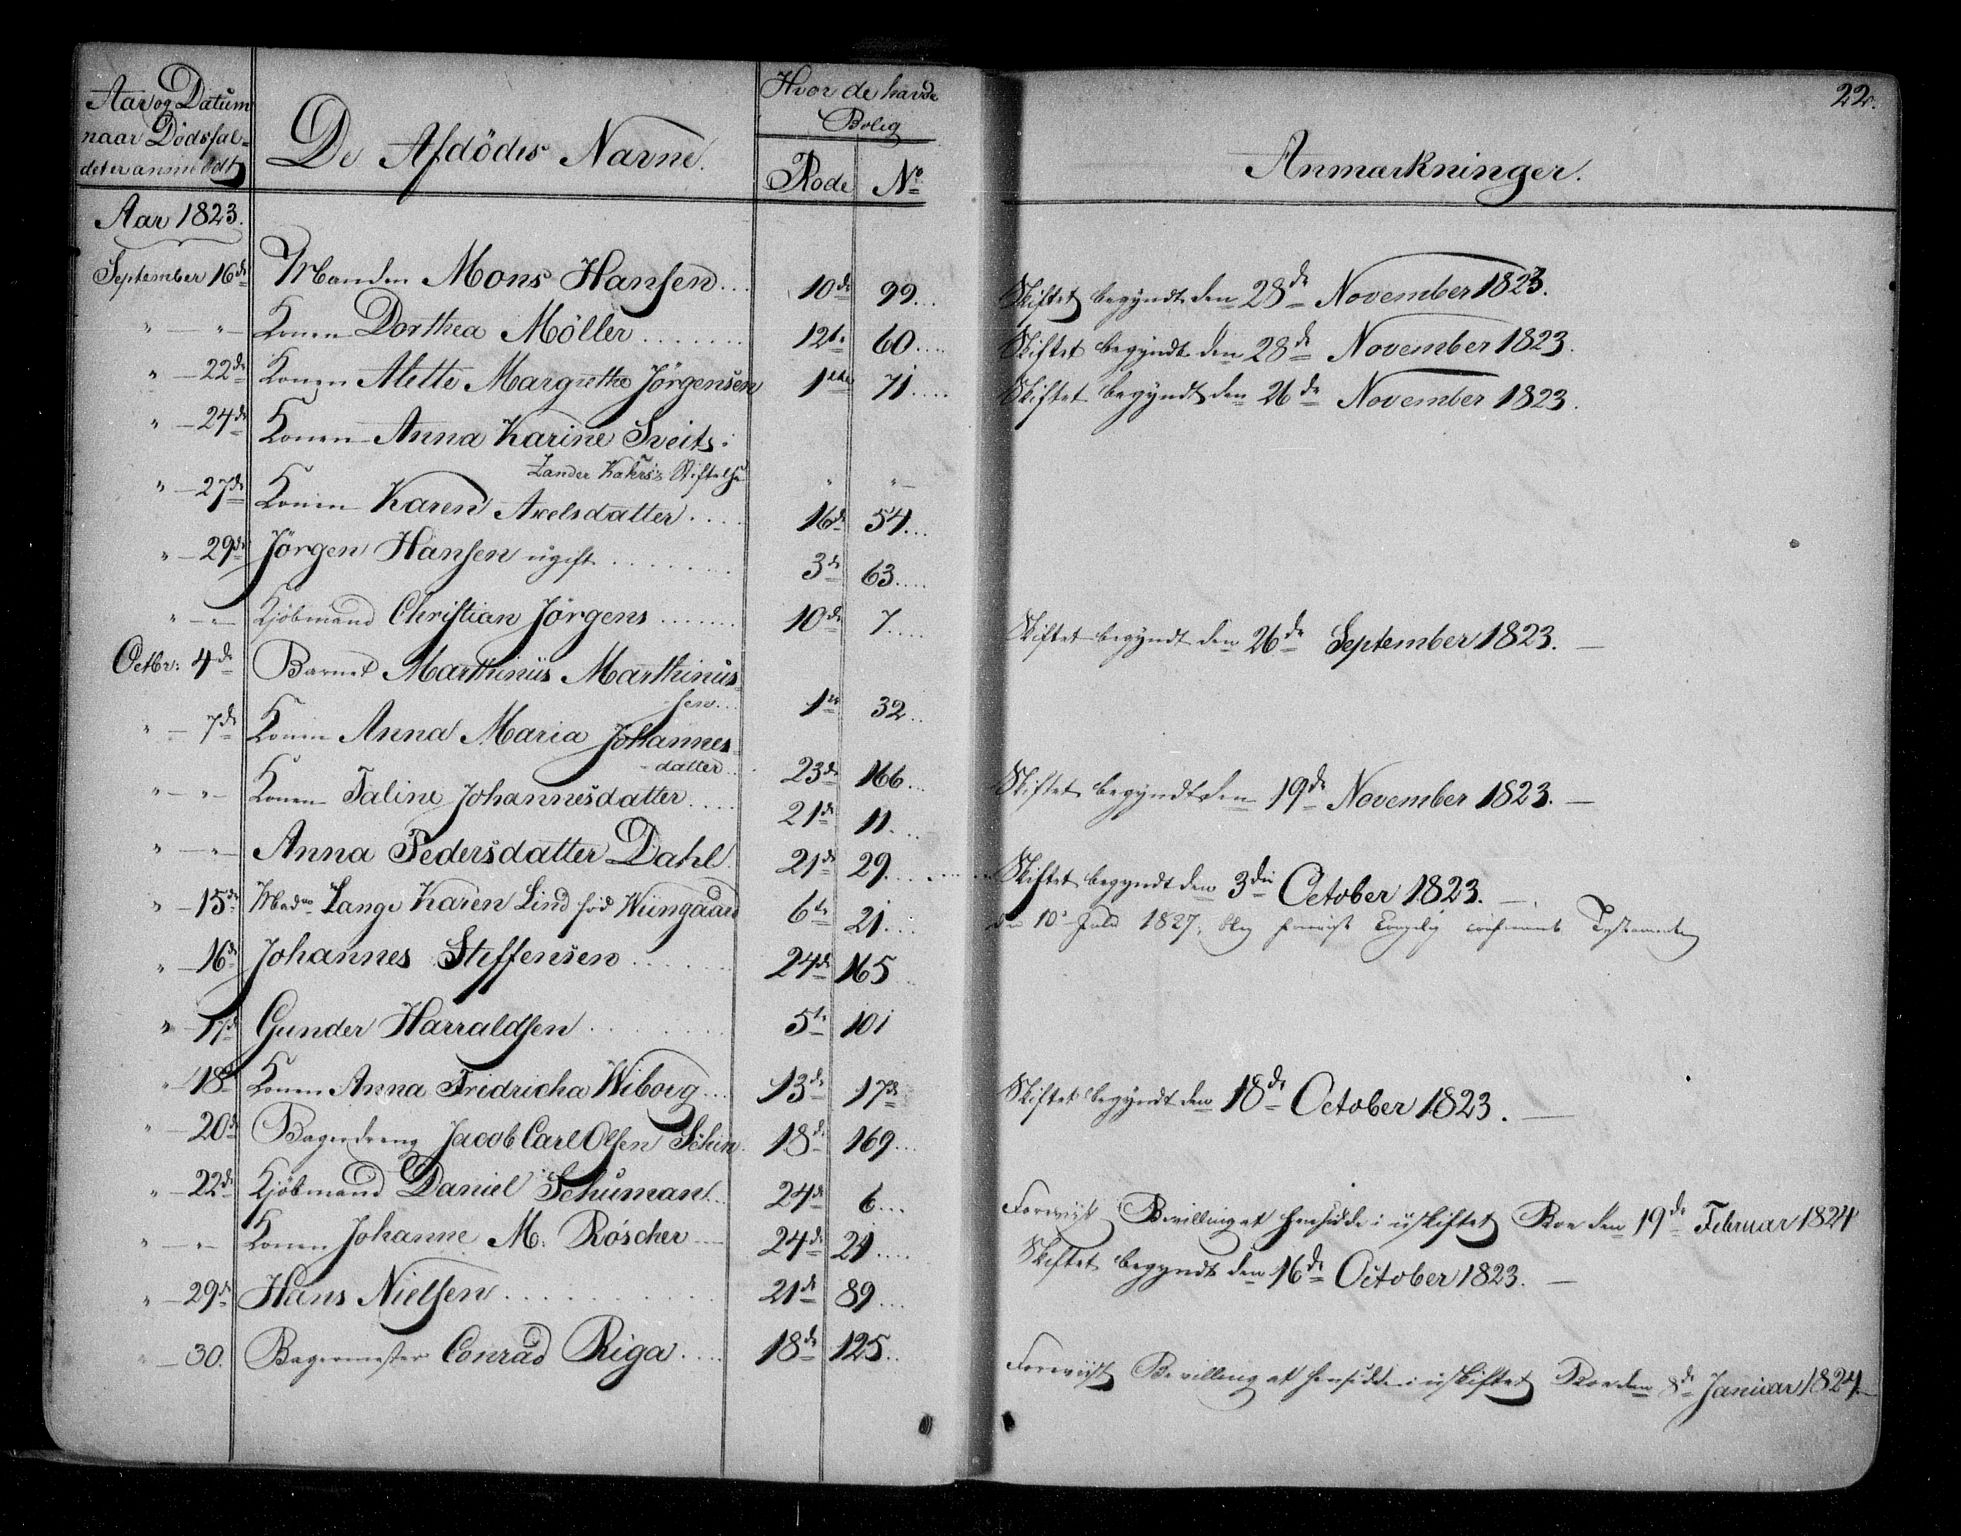 22.
Aar og Datum naar Dødsfal-det er anmeldt
De Afdødes Navne.
Hvor de havde Bolig
Rode No
Anmærkninger.
Aar 1823.
September 16de Manden Mons Hansen... 10de 99... Skiftet begyndt den 28de November 1823.
" — " — Konen Dorthea Möller....... 12te 60.... Skiftet begyndt den 28de November 1823.
" — 22de Konen Alette Margrethe Jörgensen 1ste 71.... Skiftet begyndt den 26de November 1823.
" — 24de Konen Anna Karine Sveits:
Zander Kahrs's Stiftelse " " —
" — 27de Konen Karen Axelsdatter.... 16de 54...
" — 29de Jörgen Hansen ugift........ 3de 63....
" — " — Kjöbmand Christian Jörgens....... 10de 7.... Skiftet begyndt den 26de September 1823. —
Octbr: 4de Barnet Marthinus Marthinus-
sen... 1ste 32...
" — 7de Konen Anna Maria Johannes-
datter... 23de 166... Skiftet begyndt den 19de November 1823. —
" — " — Konen Taline Johannesdatter..... 21de 11...
" — " — Anna Pedersdatter Dahl. 21de 29......... Skiftet begyndt den 3die October 1823. —
" — 15de Made Lange Karen Lind föd Wiingaard 6te 21.... den 10de Juli 1827. blev
" — 16de Johannes Steffensen....... 24de 165...
" — 17de Gunder Harraldsen....... 5te 101
" — 18de Konen Anna Fredricha Wiborg... 13de 17de Skiftet begyndt den 18de October 1823. —
" — 20de Bagerdreng Jacob Carl Olsen Schin. 18de 169...
" — 22de Kjöbmand Daniel Schuman... 24de 6.... Foreviist Bevilling at hensidde i uskiftet Boe den 19de Februar 1824
" — " — Konen Johanne M. Röscher — 24de 21.... Skiftet begyndt den 16de October 1823. —
" — 29de Hans Nielsen.......... 21de 89....
" — 30. Bagermester Conrad Riga.... 18de 125... Foreviist Bevilling at hensidde i uskiftet Boe den 8de Januar 1824 —